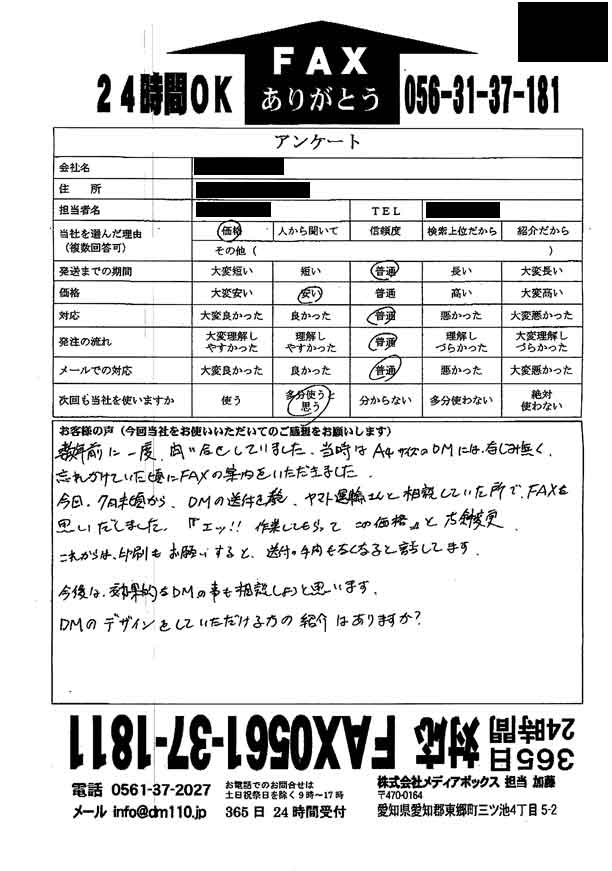 FAX
ありがとう
24時間OK
056-31-37-181
アンケート
会社名
住 所
担当者名 TEL
当社を選んだ理由(複数回答可) 価格 人から聞いて 信頼度 検索上位だから 紹介だから
その他( )
発送までの期間 大変短い 短い 普通 長い 大変長い
価格 大変安い 安い 普通 高い 大変高い
対応 大変良かった 良かった 普通 悪かった 大変悪かった
発注の流れ 大変理解しやすかった 理解しやすかった 普通 理解しづらかった 大変理解しづらかった
メールでの対応 大変良かった 良かった 普通 悪かった 大変悪かった
次回も当社を使いますか 使う 多分使うと思う 分からない 多分使わない 絶対使わない
お客様の声(今回当社をお使いいただいてのご感想をお願いします)
数年前に一度、問い合せしていました。当時はA4サイズのDMには なじみ無く、
忘れかけていた頃にFAXの案内をいただきました。
今回、7月末頃から、DMの送付を ヤマト運輸さんと相談していた所で、FAXを
思いだしました。『エッ!! 作業してもらって この価格』と 変更
これからは、印刷も お願いすると、送付の手間もなくなると話してます。
今後は、効果的なDMの事も相談しようと思います。
DMの デザインをしていただける方の紹介はありますか?
365日
24時間
対応 FAX0561-37-1811
電話 0561-37-2027
お電話でのお問合せは
土日祝祭日を除く9時～17時
メール info@dm110.jp
365日24時間受付
株式会社メディアボックス 担当 加藤
〒470-0164
愛知県愛知郡東郷町三ツ池4丁目5-2